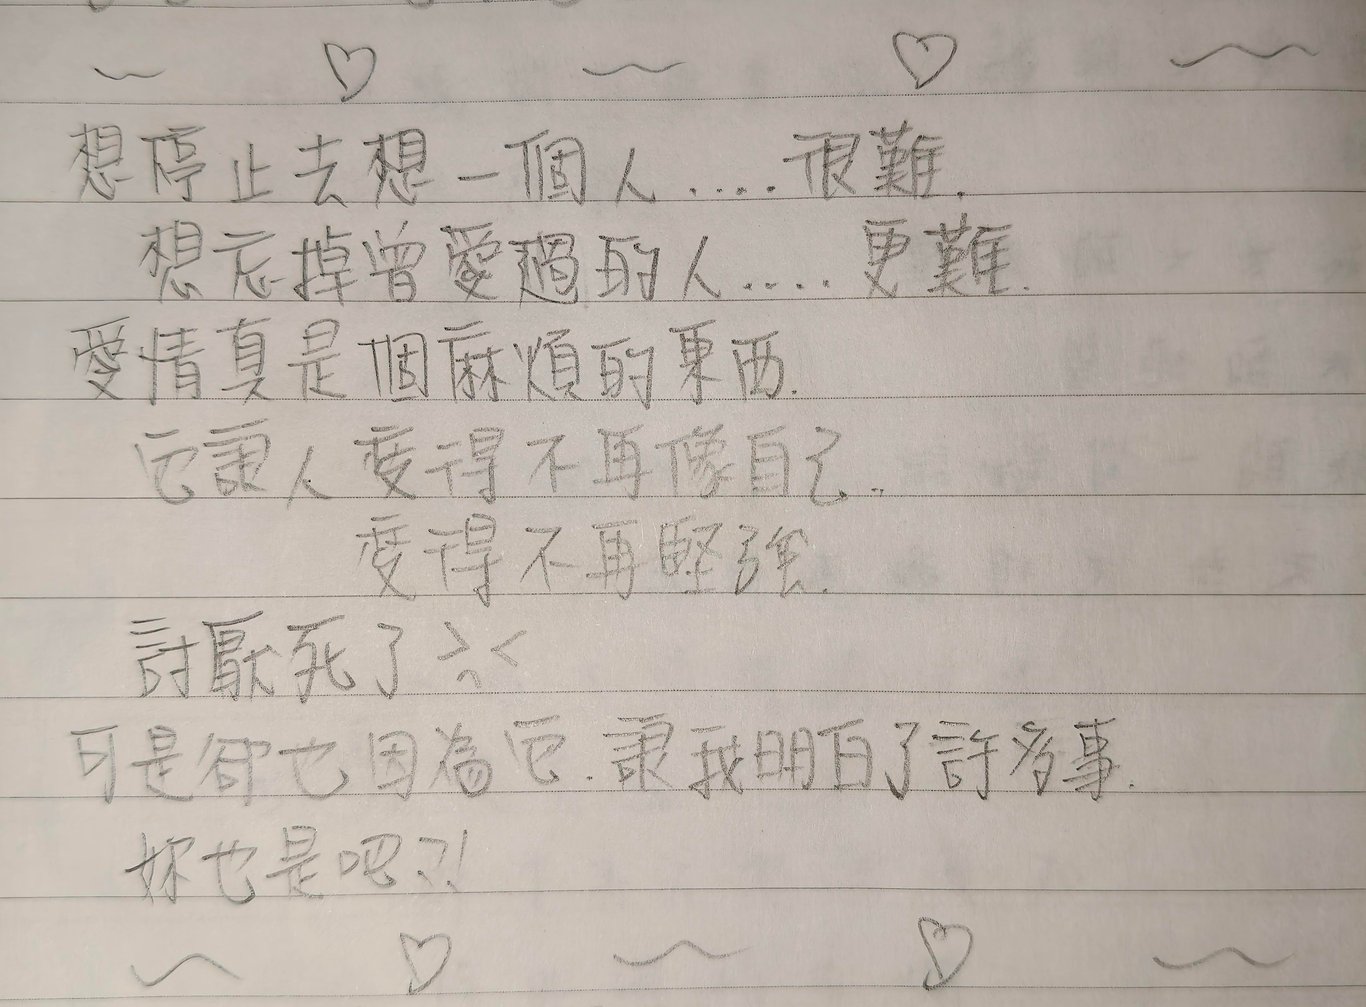 想停止去想一個人....很難.
想忘掉曾愛過的人....更難.
愛情真是個麻煩的東西.
它讓人變得不再像自己..
變得不再堅強.
討厭死了 >.<
可是卻也因為它.讓我明白了許多事.
妳也是吧?!